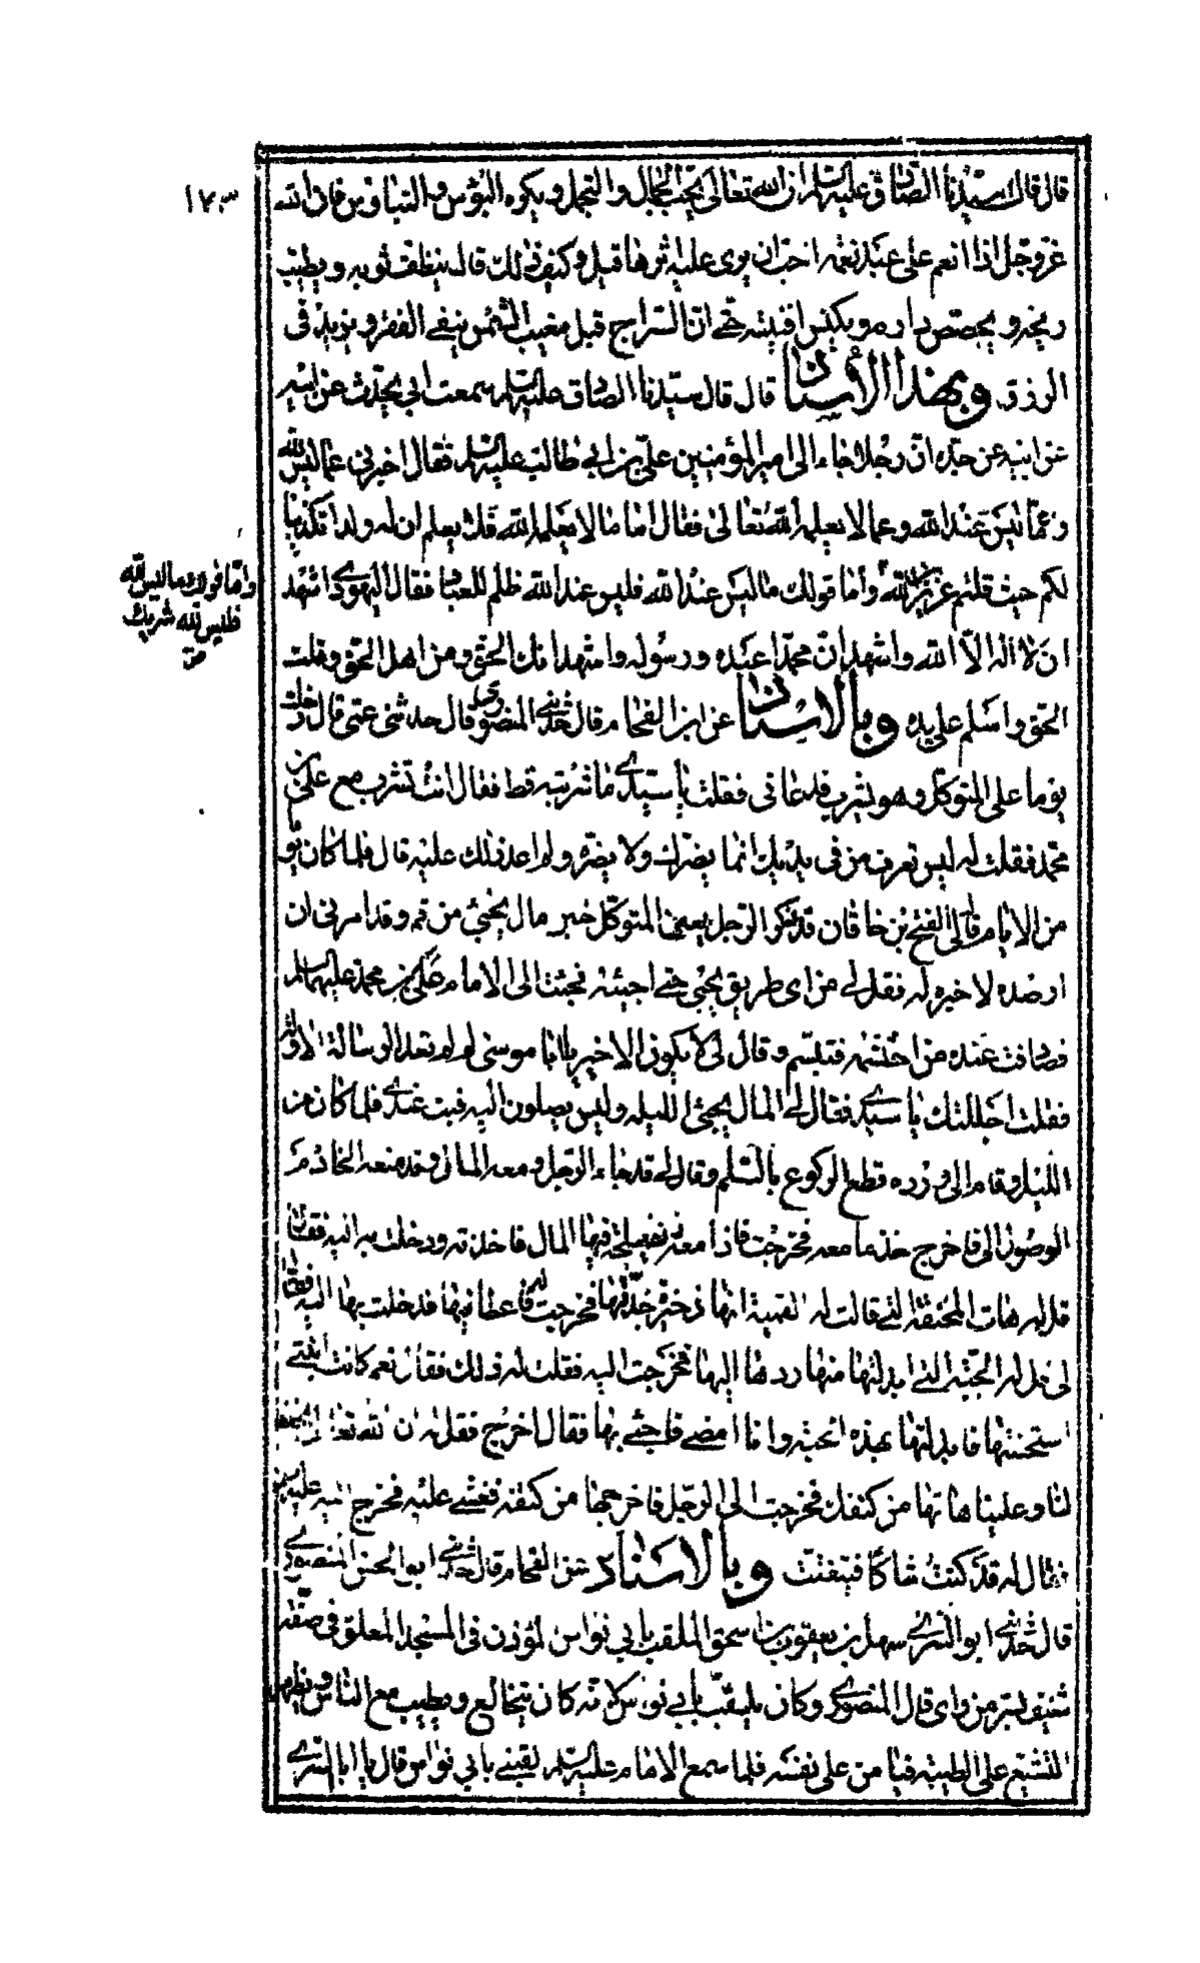 ١٧٣
قال قال سيدنا الصادق عليه السلم ان الله تعالى يحب الجمال والتجمل ويكره البؤس والتباؤس فان الله
عز وجل اذا انعم على عبد نعمة احب ان يرى عليه اثرها قيل وكيف ذلك قال ينظف ثوبه ويطيب
ريحه ويجصص داره ويكنس افنيته حتى ان السراج قبل مغيب الشمس ينفي الفقر ويزيد في
الرزق وبهذا الأسناد قال قال سيدنا الصادق عليه السلم سمعت ابي يحدث عن ابيه
عن ابيه عن جده ان رجلا جاء الى امير المؤمنين علي بن ابي طالب عليه السلم فقال اخبرني عما ليس لله
وعما ليس عند الله وعما لا يعلمه الله تعالى فقال اما ما لا يعلمه الله فلا يعلم ان له ولدا تكذيبا
لكم حيث قلتم عزير بن الله واما قولك ما ليس عند الله فليس عند الله ظلم للعباد فقال اليهودي اشهد
واما قولك ما ليس لله
فليس لله شريك
صح
ان لا اله الا الله واشهد ان محمدا عبده ورسوله واشهد انك الحق ومن اهل الحق وقلت
الحق واسلم على يده وبالاسناد عن ابن الفحام قال حدثني المنصوري قال حدثني عمي قال دخلت
يوما على المتوكل وهو يشرب فدعاني فقلت يا سيدي ما شربته قط فقال انت تشرب مع علي بن
محمد فقلت له ليس تعرف من في يديك انما يضرك ولا يضره ولم اعد ذلك عليه قال فلما كان يوما
من الايام قال لي الفتح بن خاقان قد ذكر الرجل يعني المتوكل خبر مال يجيئ من قم وقد امرني ان
ارصده لاخبره له فقل لي من اي طريق يجيئ حتى اجتنبه فجئت الى الامام علي بن محمد عليهما السلم
فصادفت عنده من احتشمه فتبسم وقال لي لا يكون الا خير يا ابا موسى لم لم تعد الرسالة الاولة
فقلت اجللتك يا سيدي فقال لي المال يجيئ الليله وليس يصلون اليه فبت عندي فلما كان من
الليل وقام الى ورده قطع الركوع بالسلم وقال لي قد جاء الرجل ومعه المال وقد منعه الخادم
الوصول الي فاخرج خذ ما معه فخرجت فاذا معه زنفيلجة فيها المال فاخذته ودخلت به اليه فقال
قل له هات المخنقة التي قالت له القمية انها ذخيرة جدتها فخرجت له فاعطانيها فدخلت بها اليه فقال
لي قل له الجبة التي ابدلتها منها ردها الينا فخرجت اليه فقلت له ذلك فقال نعم كانت ابنتي
استحسنتها فابدلتها بهذه الجبة وانا امضي فاجئ بها فقال اخرج فقل له ان الله تعالى يحفظ
لنا وعلينا هاتها من كتفك فخرجت الى الرجل فاخرجها من كتفه فغشي عليه فخرج اليه عليه السلم
فقال له قد كنت شاكا فتيقنت وبالاسناد عن الفحام قال حدثني ابو الحسن المنصوري
قال حدثني ابو السري سهل بن يعقوب بن اسحق الملقب بابي نواس المؤذن في المسجد المعلق في صفة
شنيف بسر من راى قال المنصوري وكان يلقب بابي نواس لانه كان يتخالع ويطيب مع الناس ويظهر
التشيع على الطيبة فيامن على نفسه فلما سمع الامام عليه السلم لقبني بابي نواس قال يا ابا السري